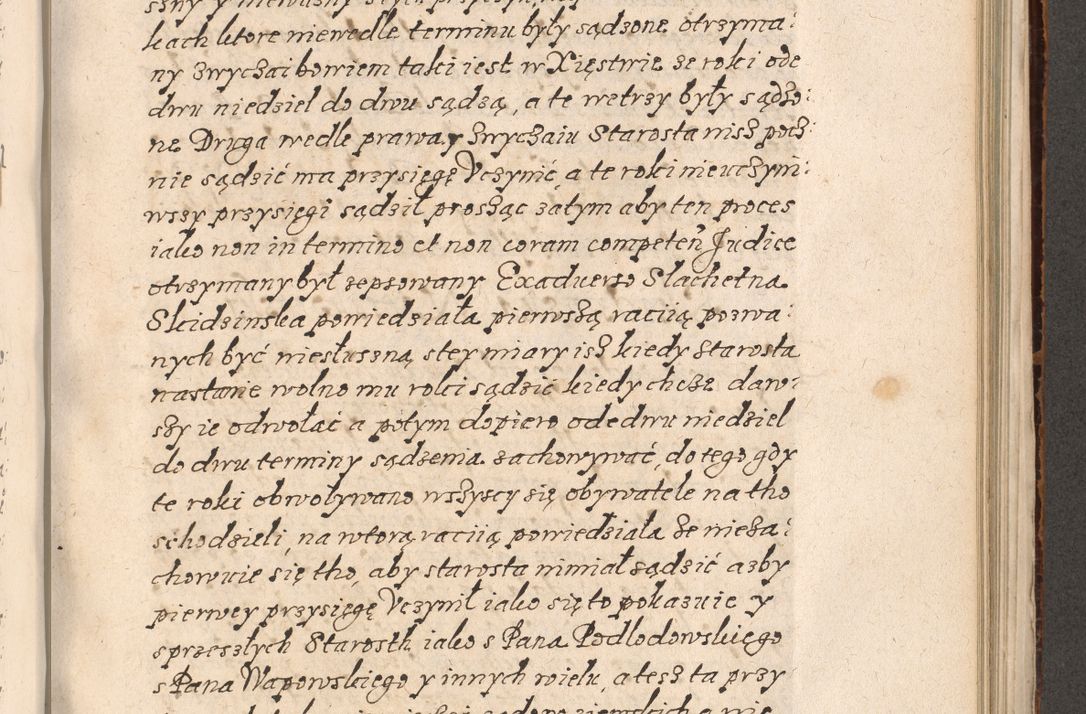 kach ktore niewedle terminu były sądzone otrzyma:
ny zwyczai bowiem taki iest w Xięstwie ze roki ode
dwu niedziel do dwu sądzą, a te wetrzy były sądzo:
ne Druga wedle prawa y zwyczaiu Starosta nisz pocz:
nie sądzić ma przysięgę Vczynić a te roki nieuczyni:
wszy przysięgi sądził prosząc zatym aby ten proces
iako non in termino et non coram competen Judice
otrzymany był zepsowany Exaduerso Slachetna
Skidzinska powiedziała pierwszą raciią pozwa:
nych być niesłuszną stey miary isz kiedy Starosta
nastanie wolno mu roki sądzić kiedy chcze daw:
szy ie odwołać a potym dopiero ode dwu niedziel
do dwu terminy sądzenia zachowywać, do tego gdy
te roki obwoływano wszyscy się obywatele na tho
schodzieli, na wtorą raciią powiedziała ze nieza:
chowuie się tho, aby starosta nimiał sądzić azby
pierwey przysięgę Vczynił iako się to pokazuie y
sprzeszłych Starosth iako s Pana Podlodowskiego
s Pana Wapowskiego y innych wielu, a tesz ta przy